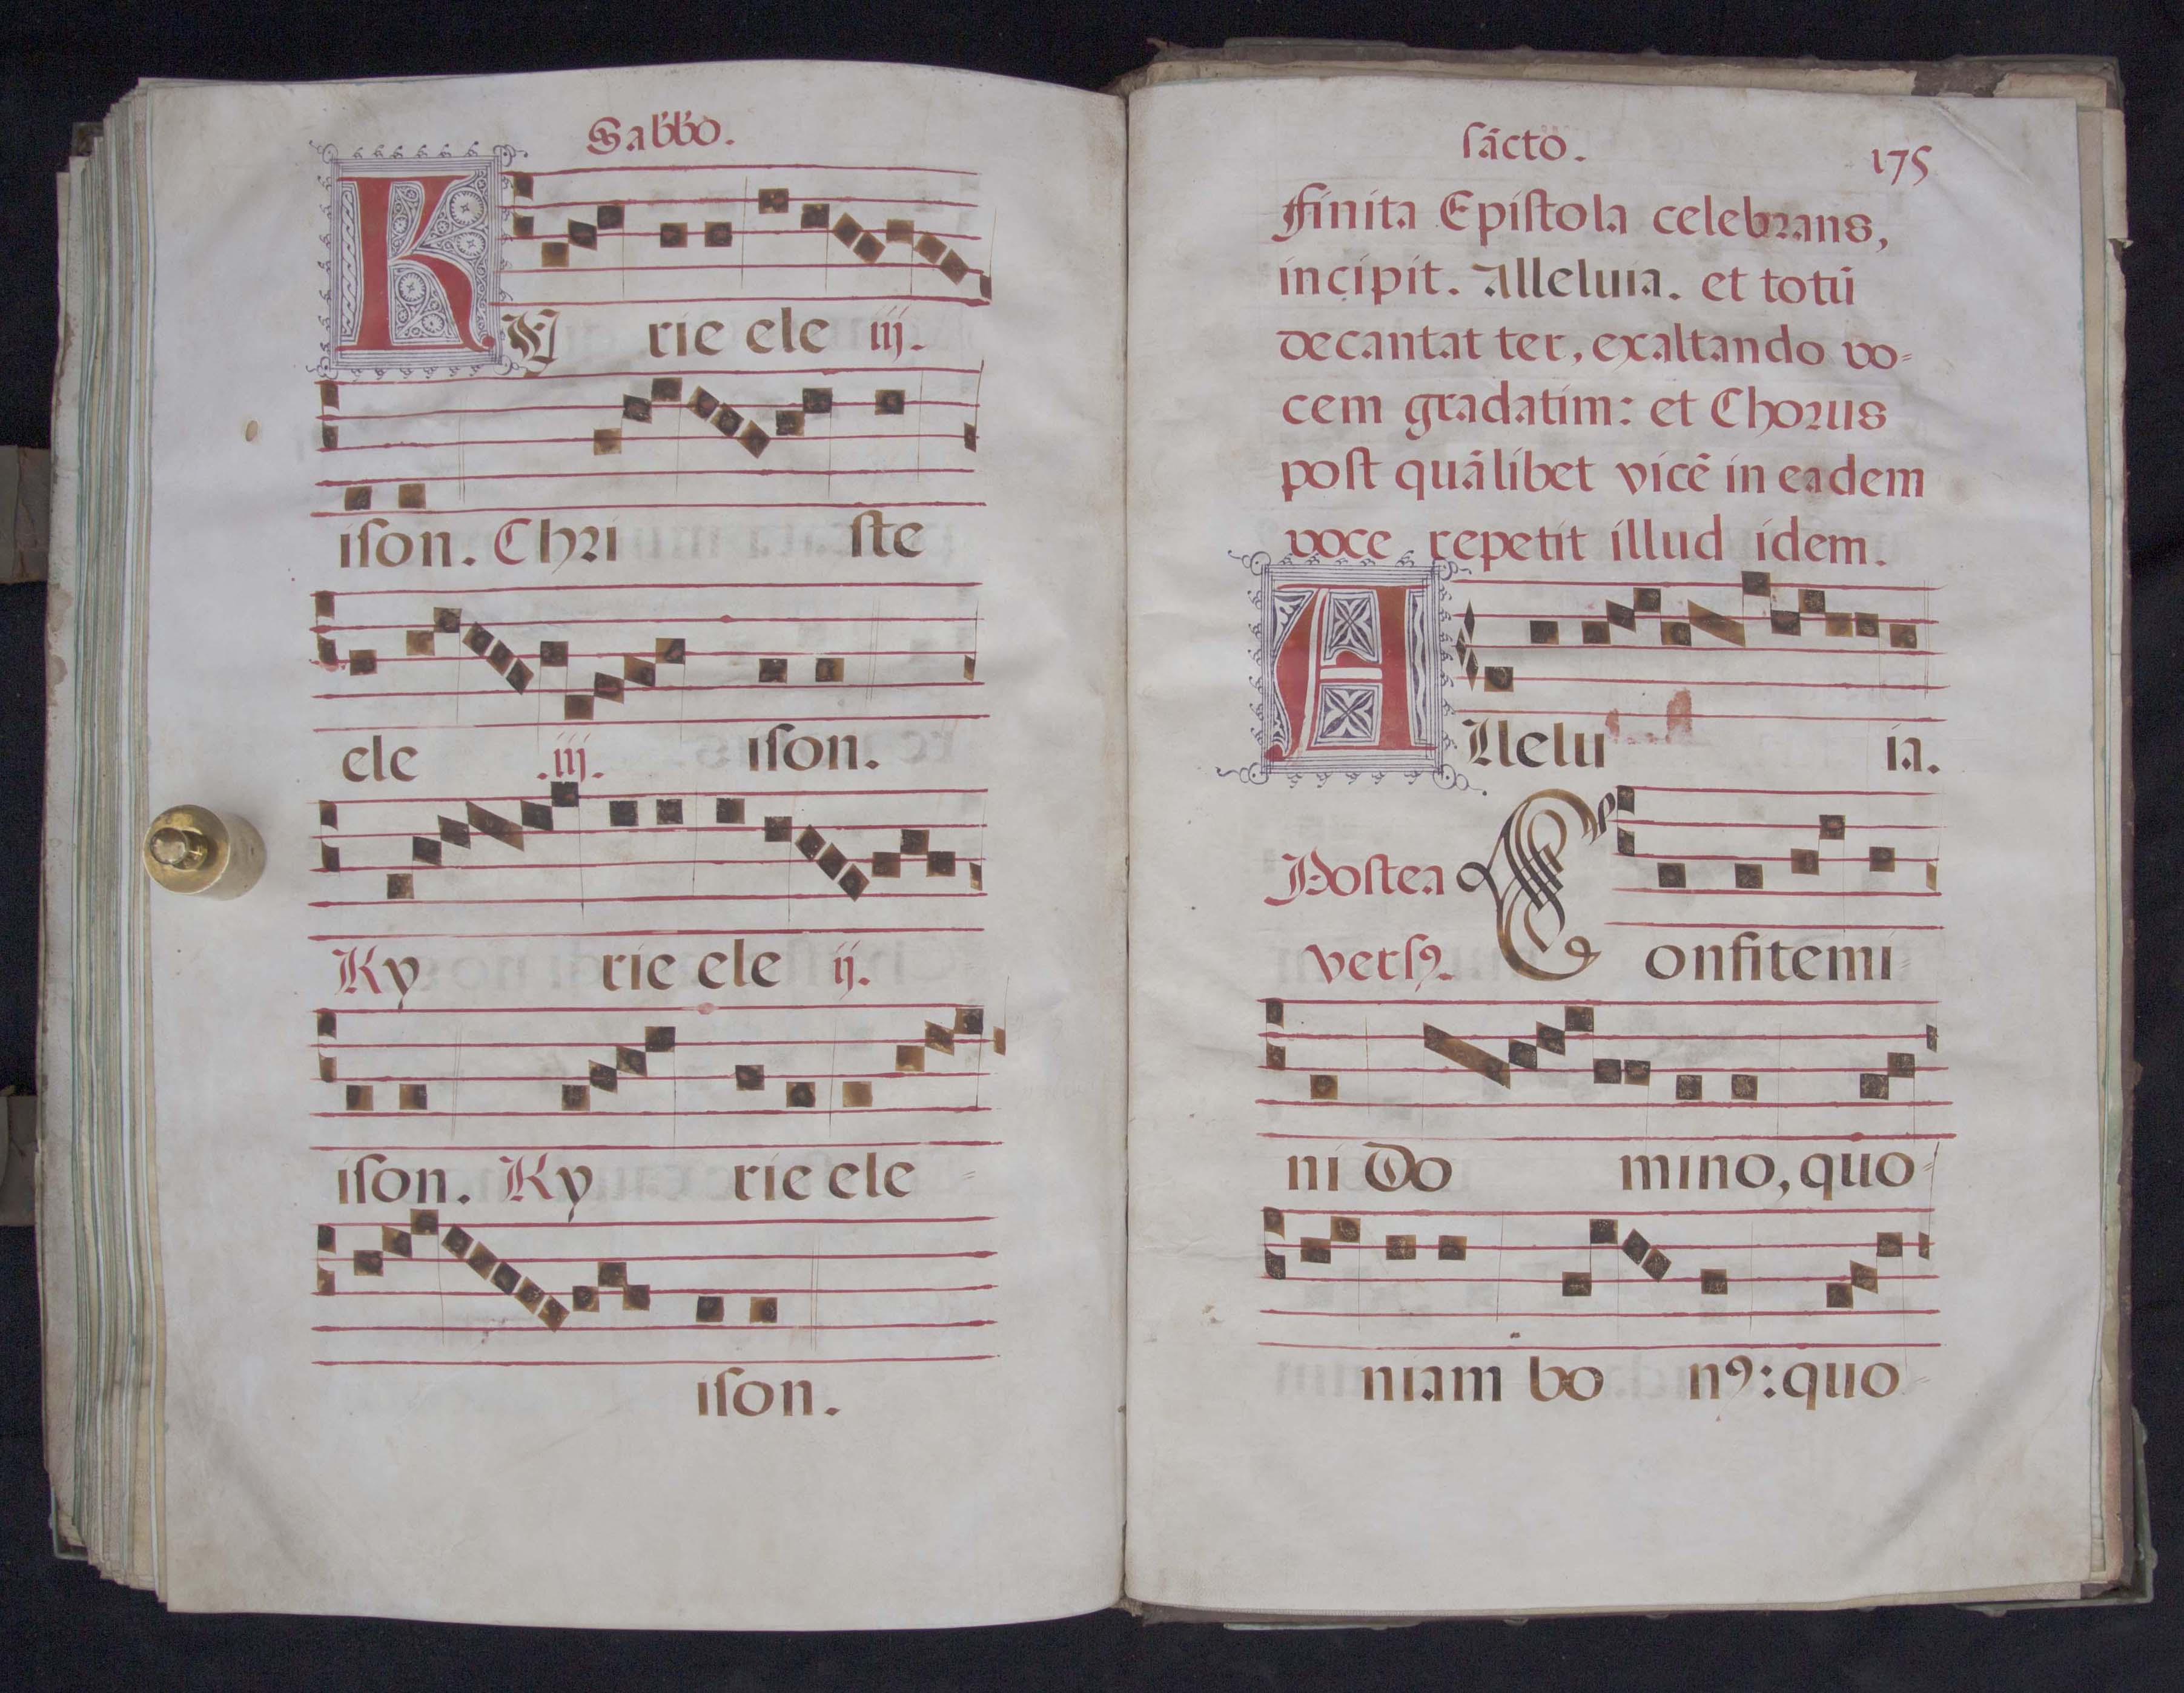 Sabbo.
KY rie ele iij.
iſon. Chri ſte
ele .iij. iſon.
Ky rie ele ij.
iſon. Ky rie ele
iſon.
ſācto. 175
Finita Epiſtola celebrans,
incipit. Alleluia. et totū
decantat ter, exaltando vo=
cem gradatim: et Chorus
poſt quālibet vicē in eadem
voce repetit illud idem.
Allelu ia.
Poſtea
verſꝰ. Confitemi
ni Do mino, quo
niam bo nꝰ: quo